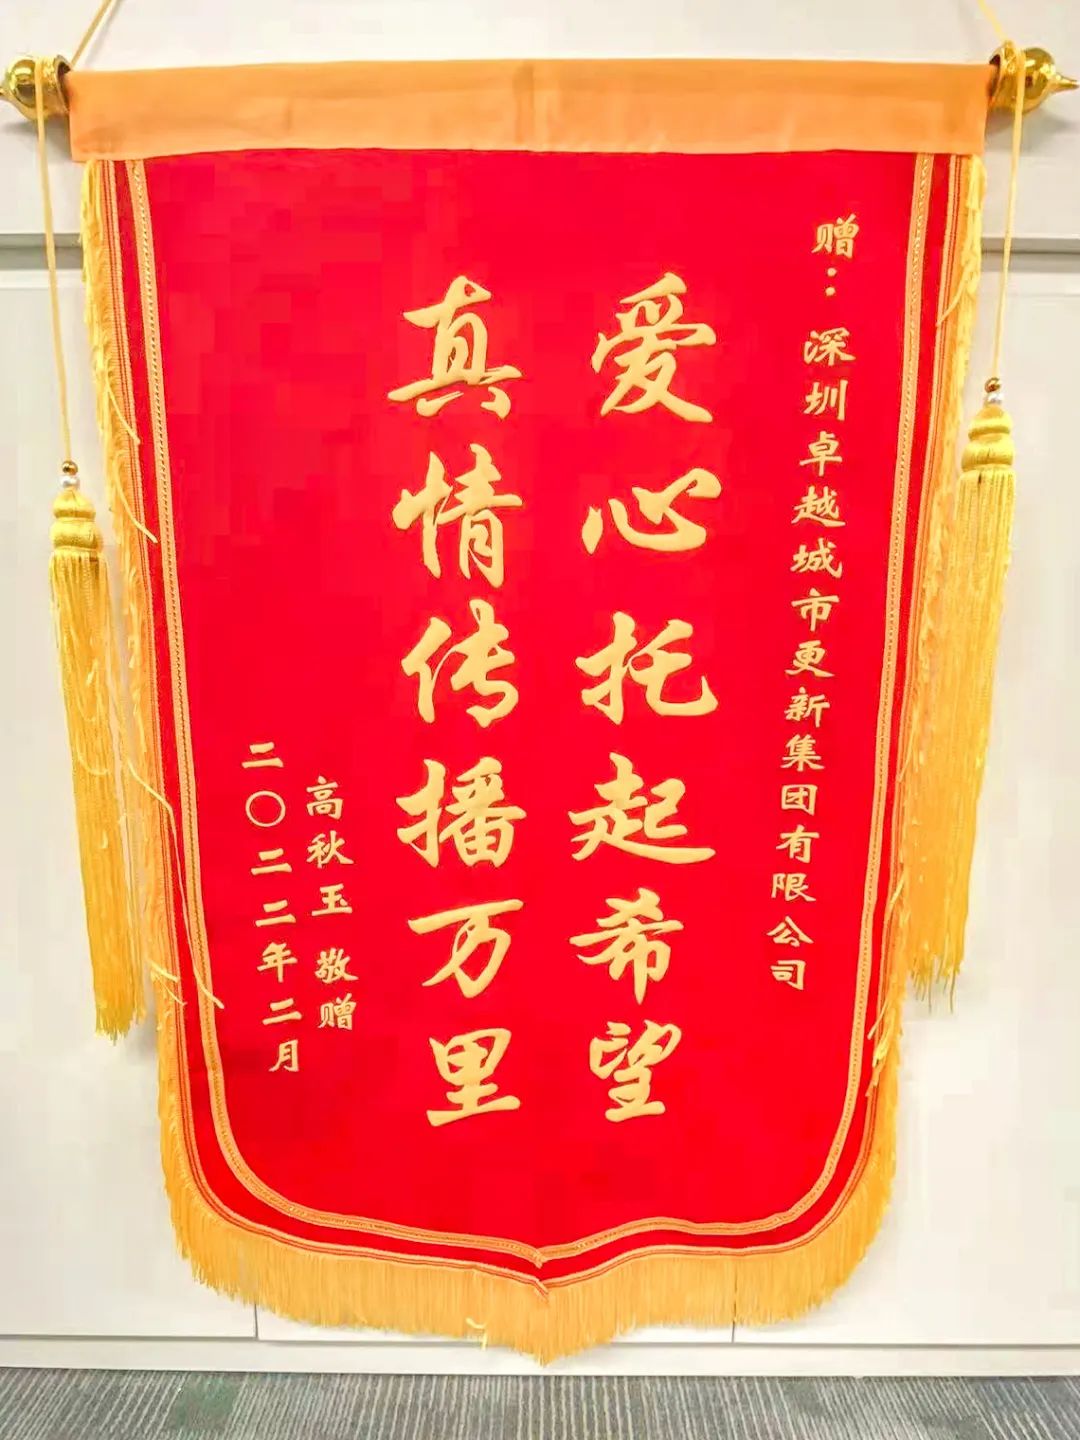 赠：深圳卓越城市更新集团有限公司
爱心托起希望
真情传播万里
高秋玉 敬赠
二〇二二年二月